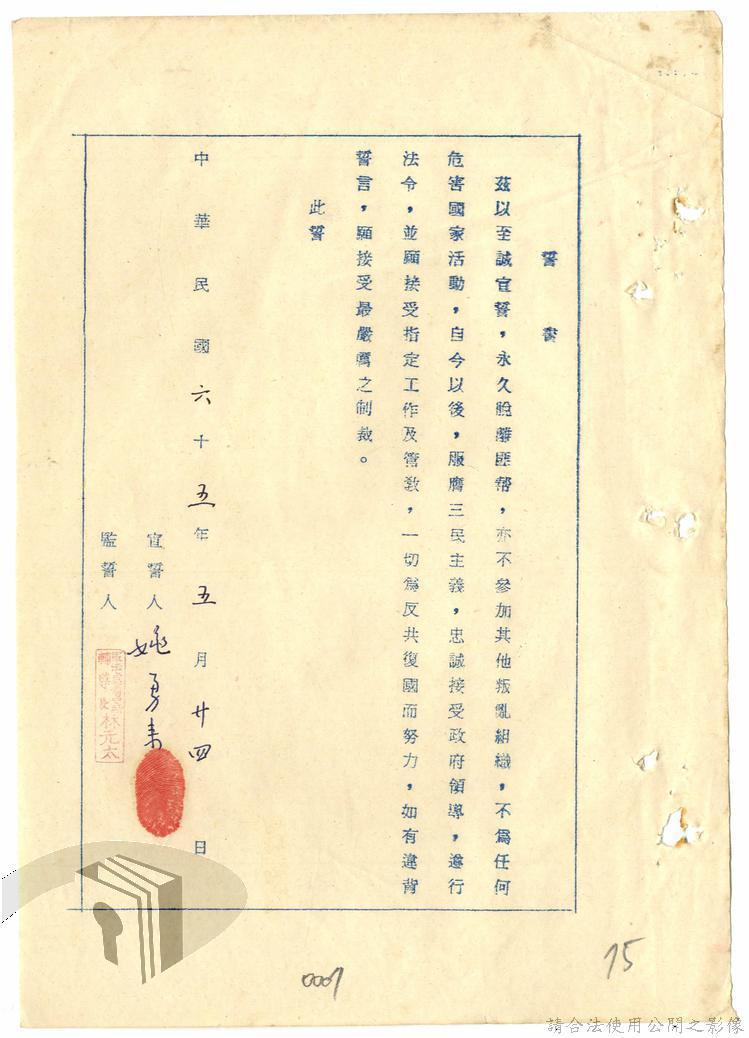 誓書
茲以至誠宣誓，永久脫離匪幫，亦不參加其他叛亂組織，不為任何
危害國家活動，自今以後，服膺三民主義，忠誠接受政府領導，遵行
法令，並願接受指定工作及管教，一切為反共復國而努力，如有違背
誓言，願接受最嚴厲之制裁。
此誓
中華民國六十五年五月廿四日
宣誓人 姚勇来
監誓人
林元太
0007
15
請合法使用公開之影像